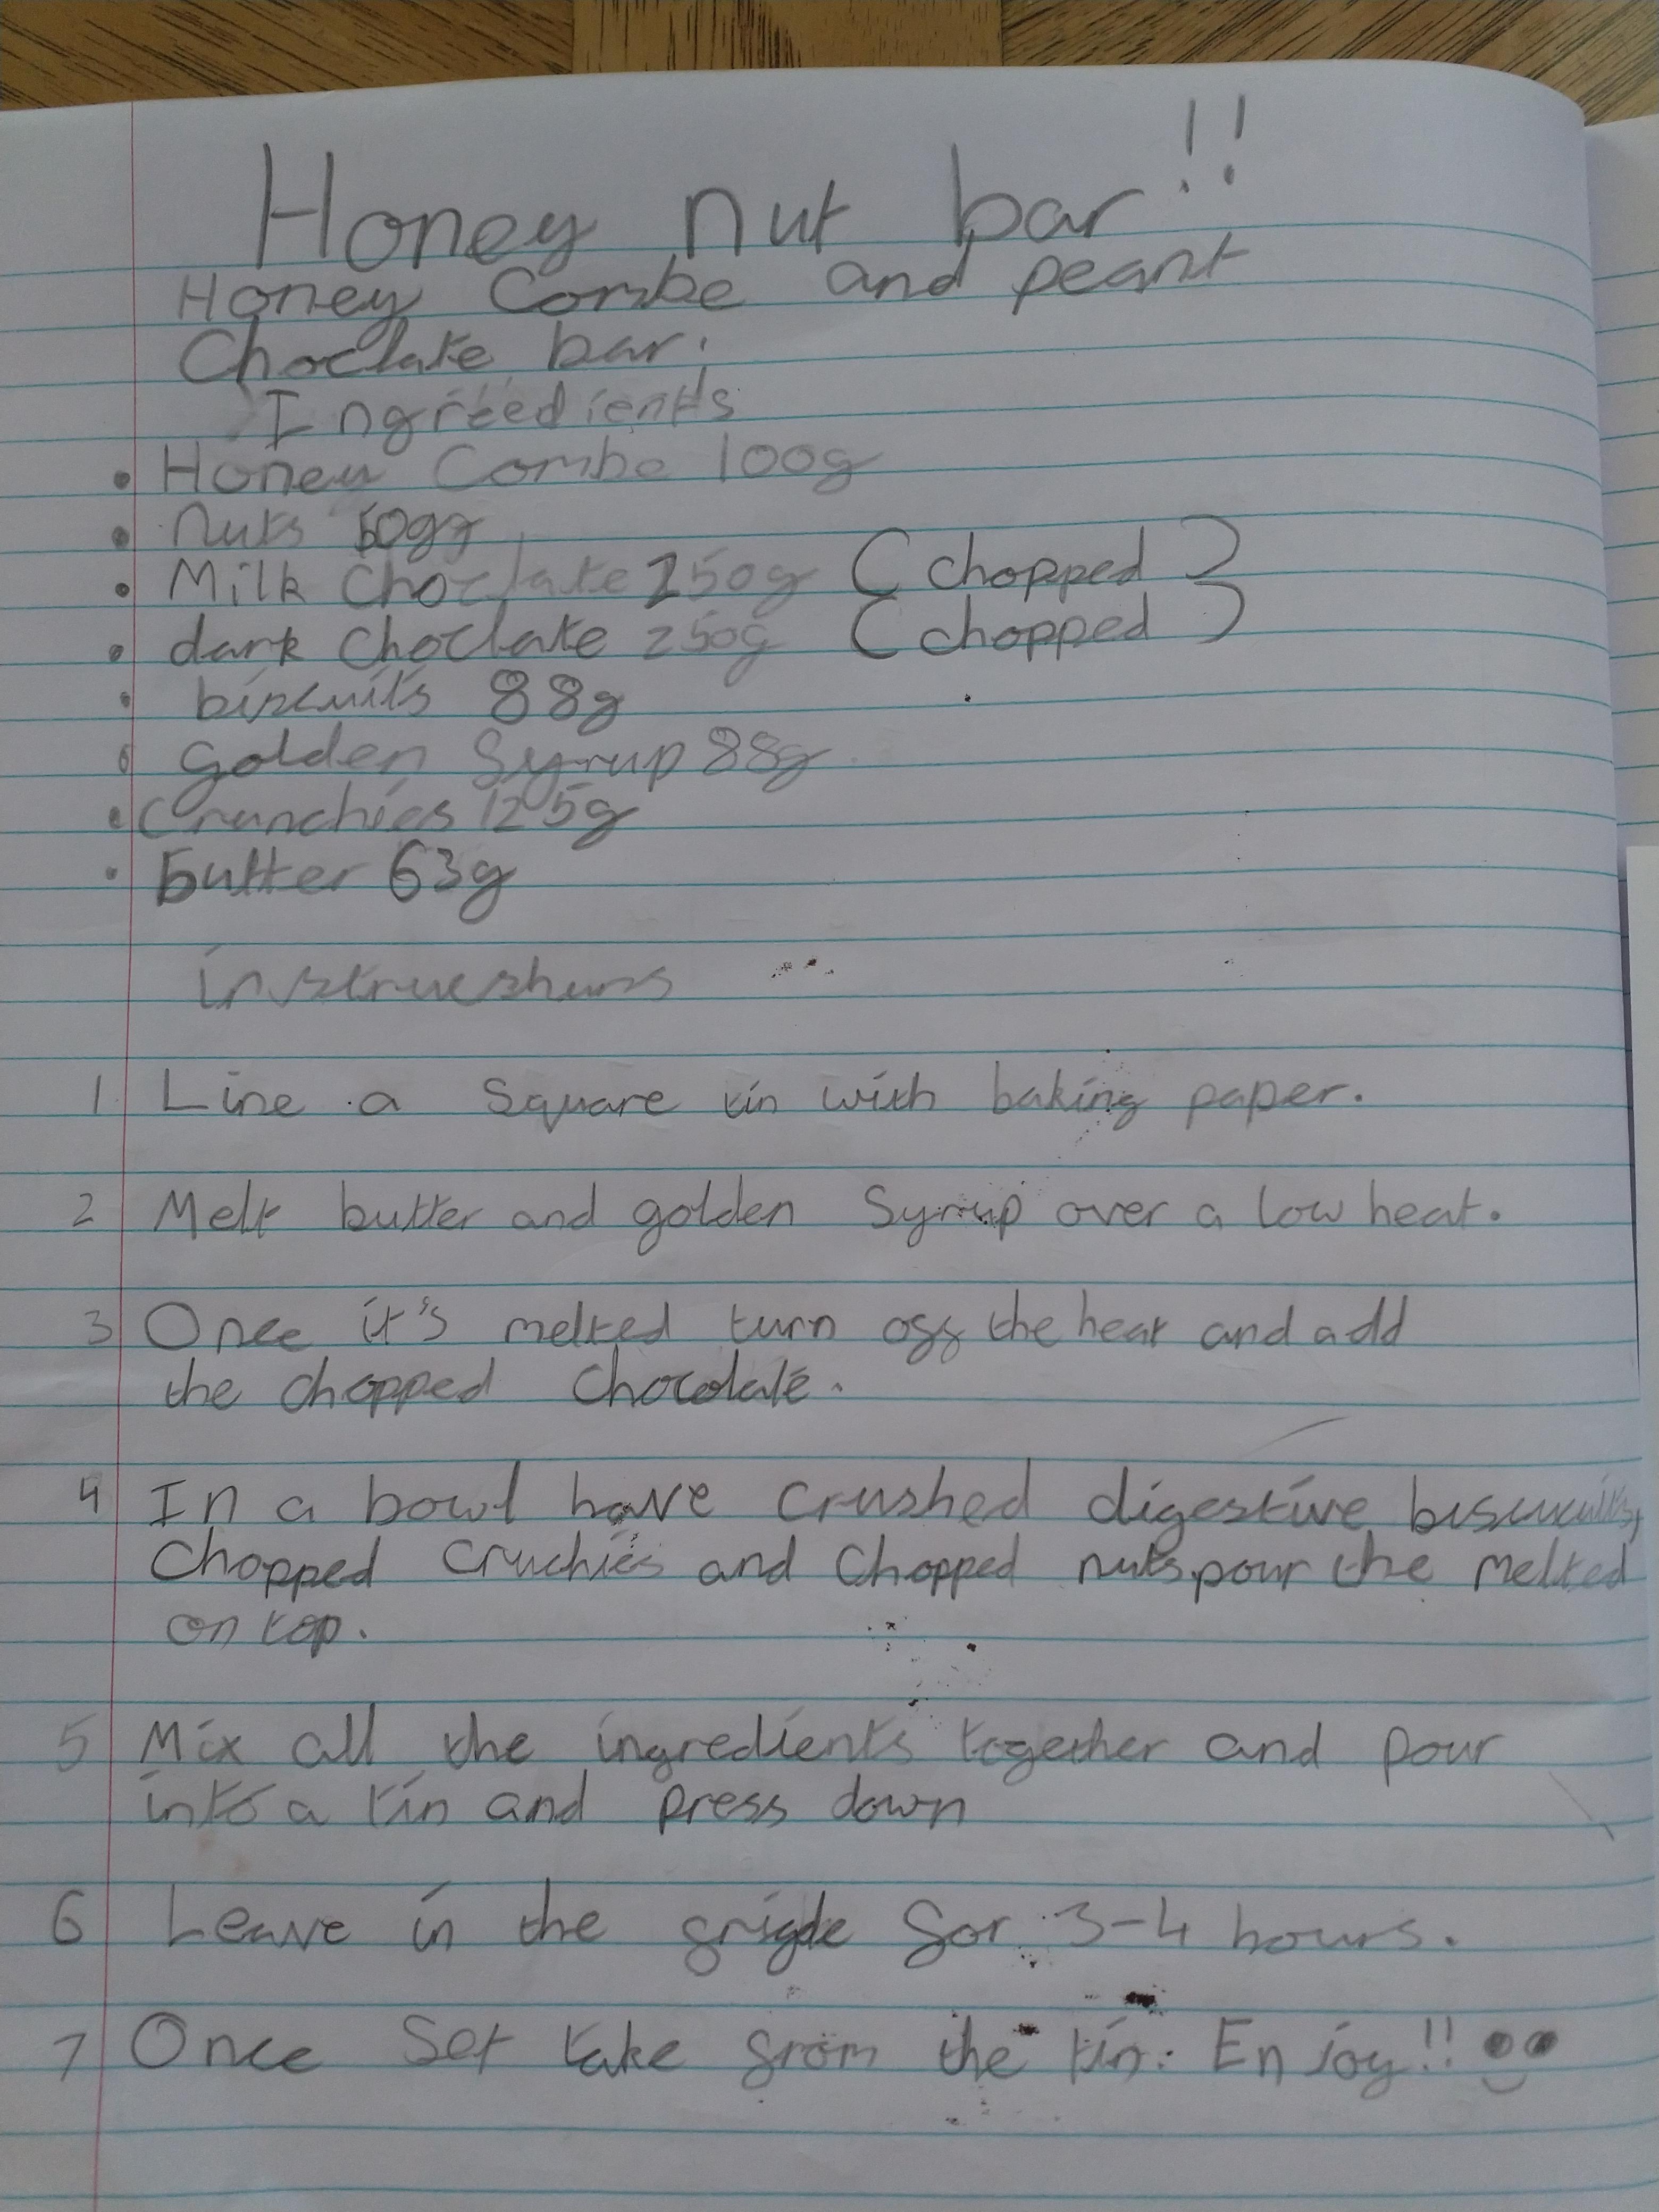 Honey nut bar!!
Honey Combe and peant
Choclate bar.
Ingreedients
• Honey Combe 100g
• nuts 50g
• Milk Choclate 250g (chopped)
• dark Choclate 250g (chopped)
• biscuits 88g
• golden Syrup 88g
• Crunchies 125g
• butter 63g
instrueshuns
1 Line a Square tin with baking paper.
2 Melt butter and golden Syrup over a low heat.
3 Once it's melted turn off the heat and add
the chopped Chocolate.
4 In a bowl have crushed digestive
Chopped Cruchies and Chopped nuts.pour the melted
on top.
5 Mix all the ingredients together and pour
into a tin and press down
6 Leave in the frigde for 3-4 hours.
7 Once Set take from the tin. Enjoy!!